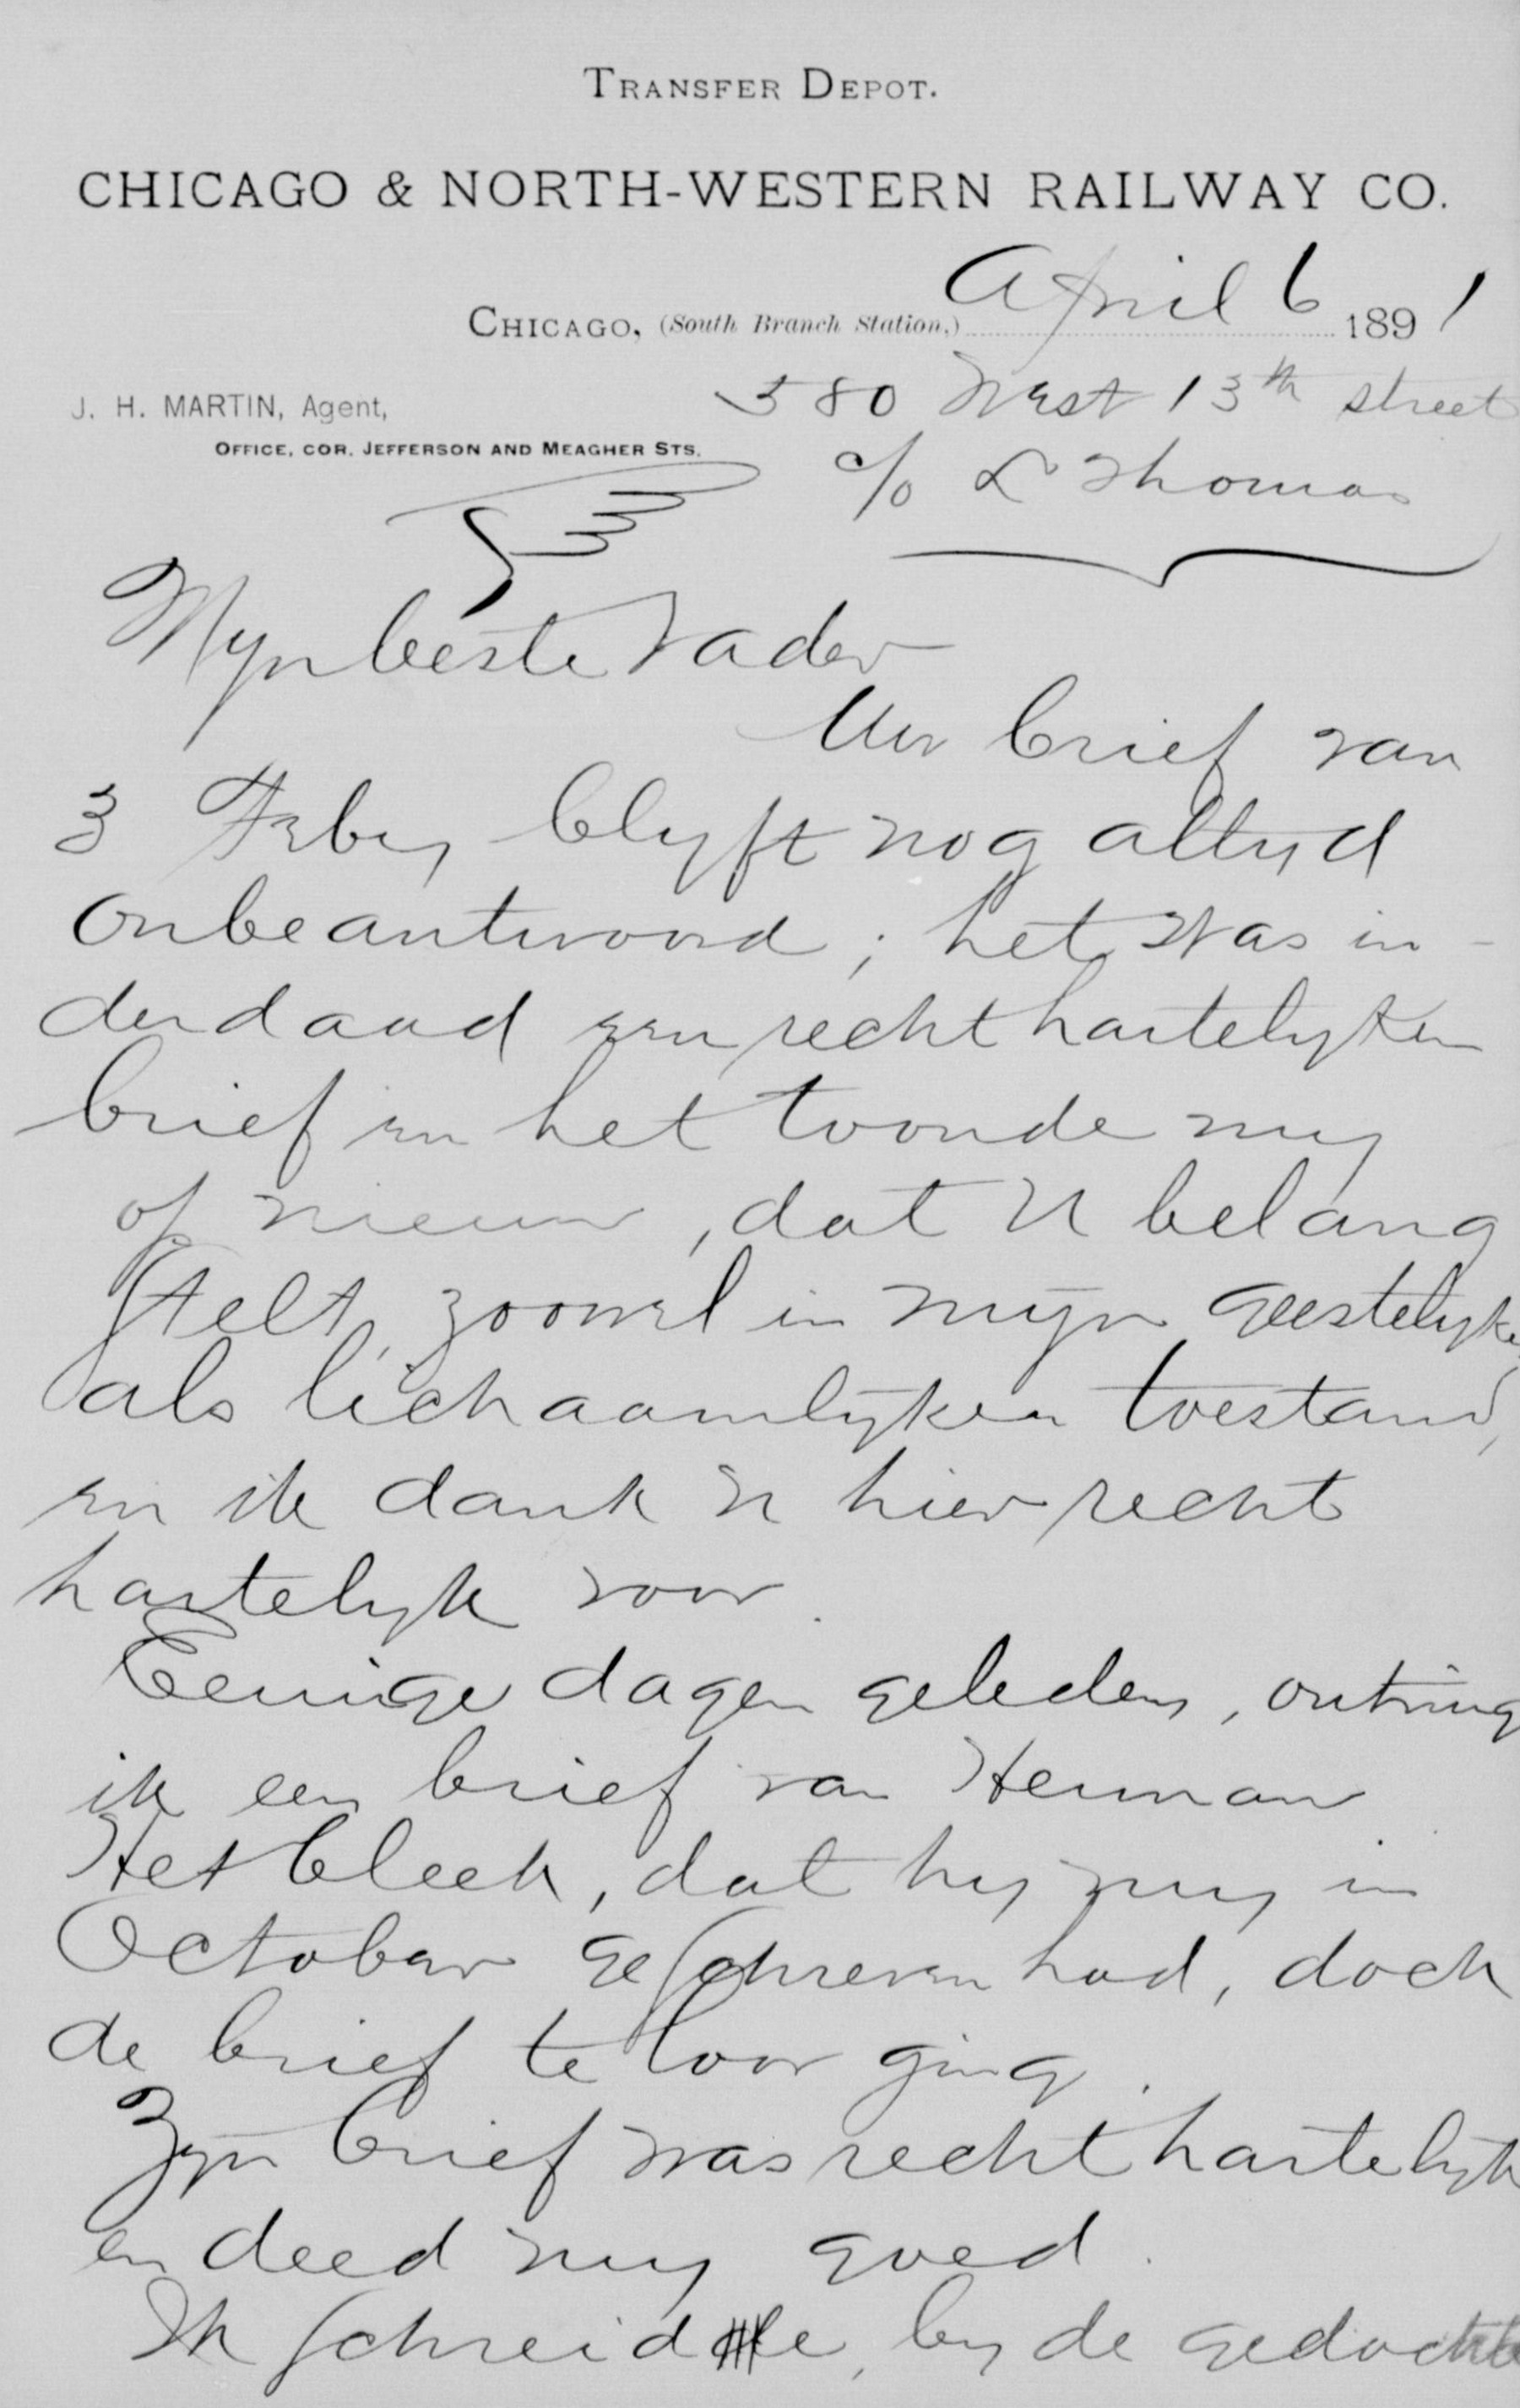 TRANSFER DEPOT.
CHICAGO & NORTH-WESTERN RAILWAY CO.
CHICAGO, (South Branch Station,) April 6 1891
J. H. MARTIN, Agent,
OFFICE, COR. JEFFERSON AND MEAGHER STS.
580 West 13th street
c/o L Thomas
Myn beste Vader
Uw brief van
3 Feby blyft nog altyd
onbeantwoord; het was in-
derdaad een recht hartelyken
brief en het toonde my
op nieuw, dat U belang
stelt, zoowel in myn geestelyken
als lichaamlyken toestand,
en ik dank U hier recht
hartelyk voor.
Eenige dagen geleden, ontving
ik een brief van Herman
Het bleek, dat hy my in
October geschreven had, doch
de brief te loor ging.
Zyn brief was recht hartelyk
en deed my goed.
Ik schreide, by de gedachte